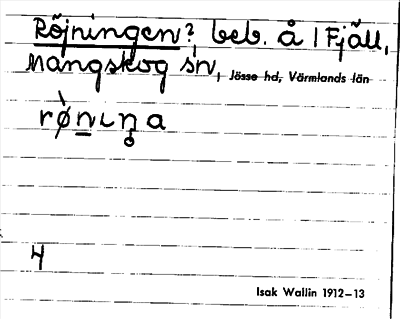 Röjningen? beb. å 1 Fjäll,
Mangskog sn, Jösse hd, Värmlands län
rø̀n̲ɩn̥a
4
Isak Wallin 1912–13